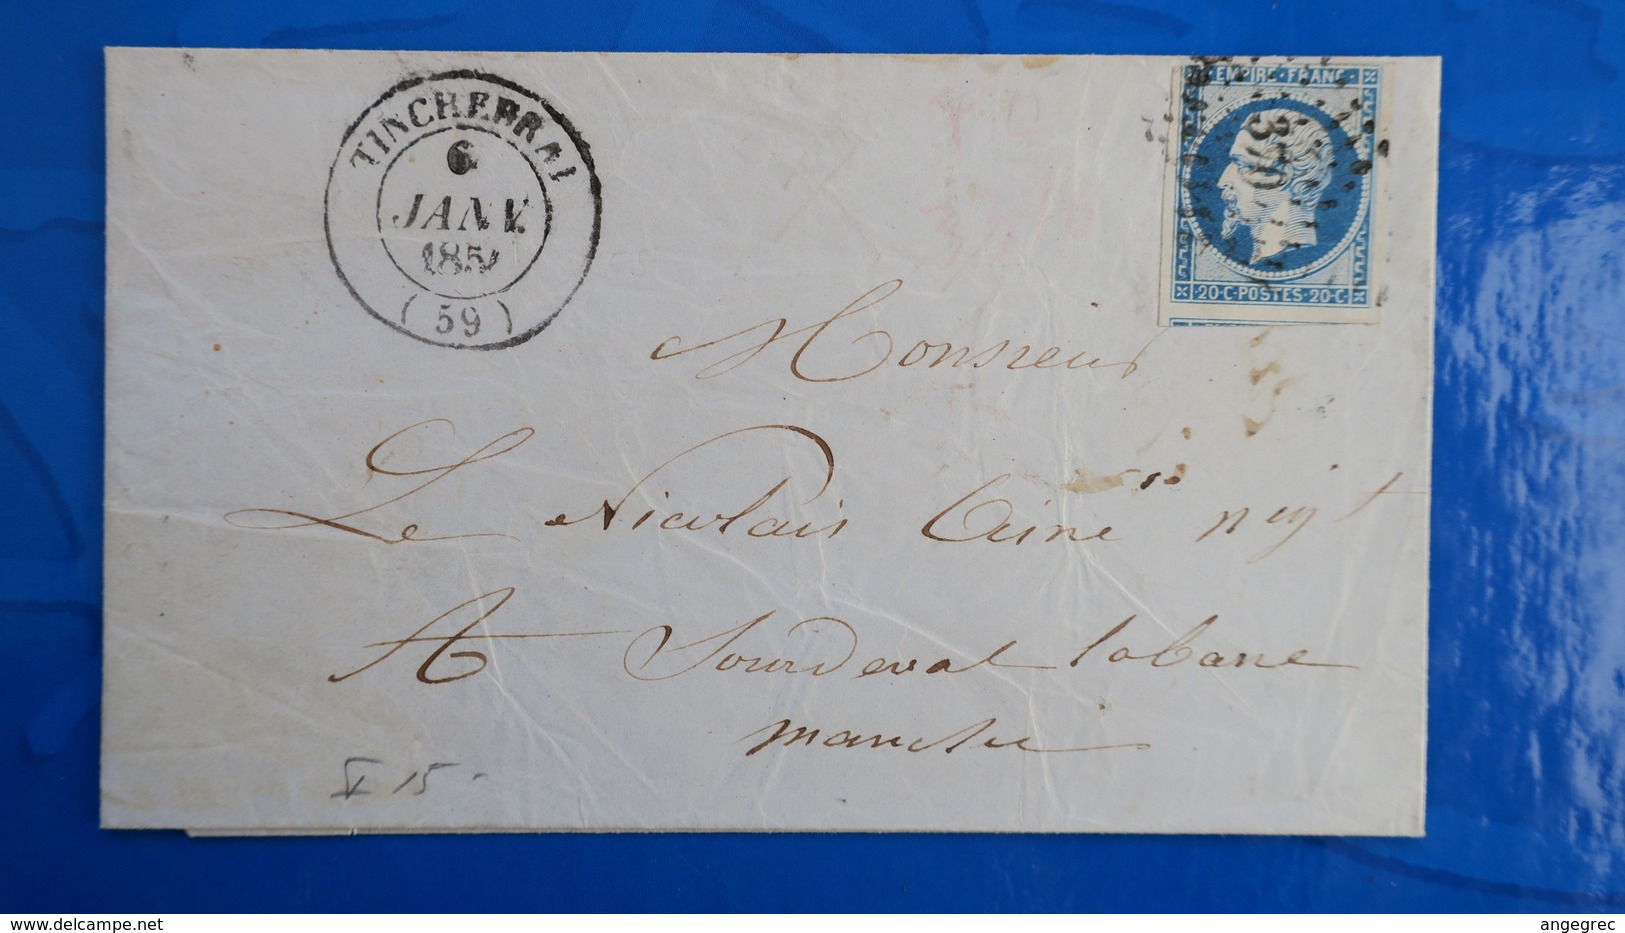 TINCHEBRAI
6
JANV.
185
(59)
EMPIRE · FRANC ·
20·C·POSTES·20·C
Monsieur
Le Nicolais Ainé
A Sourdeval labare
manche
15
delcampe.net
angegrec